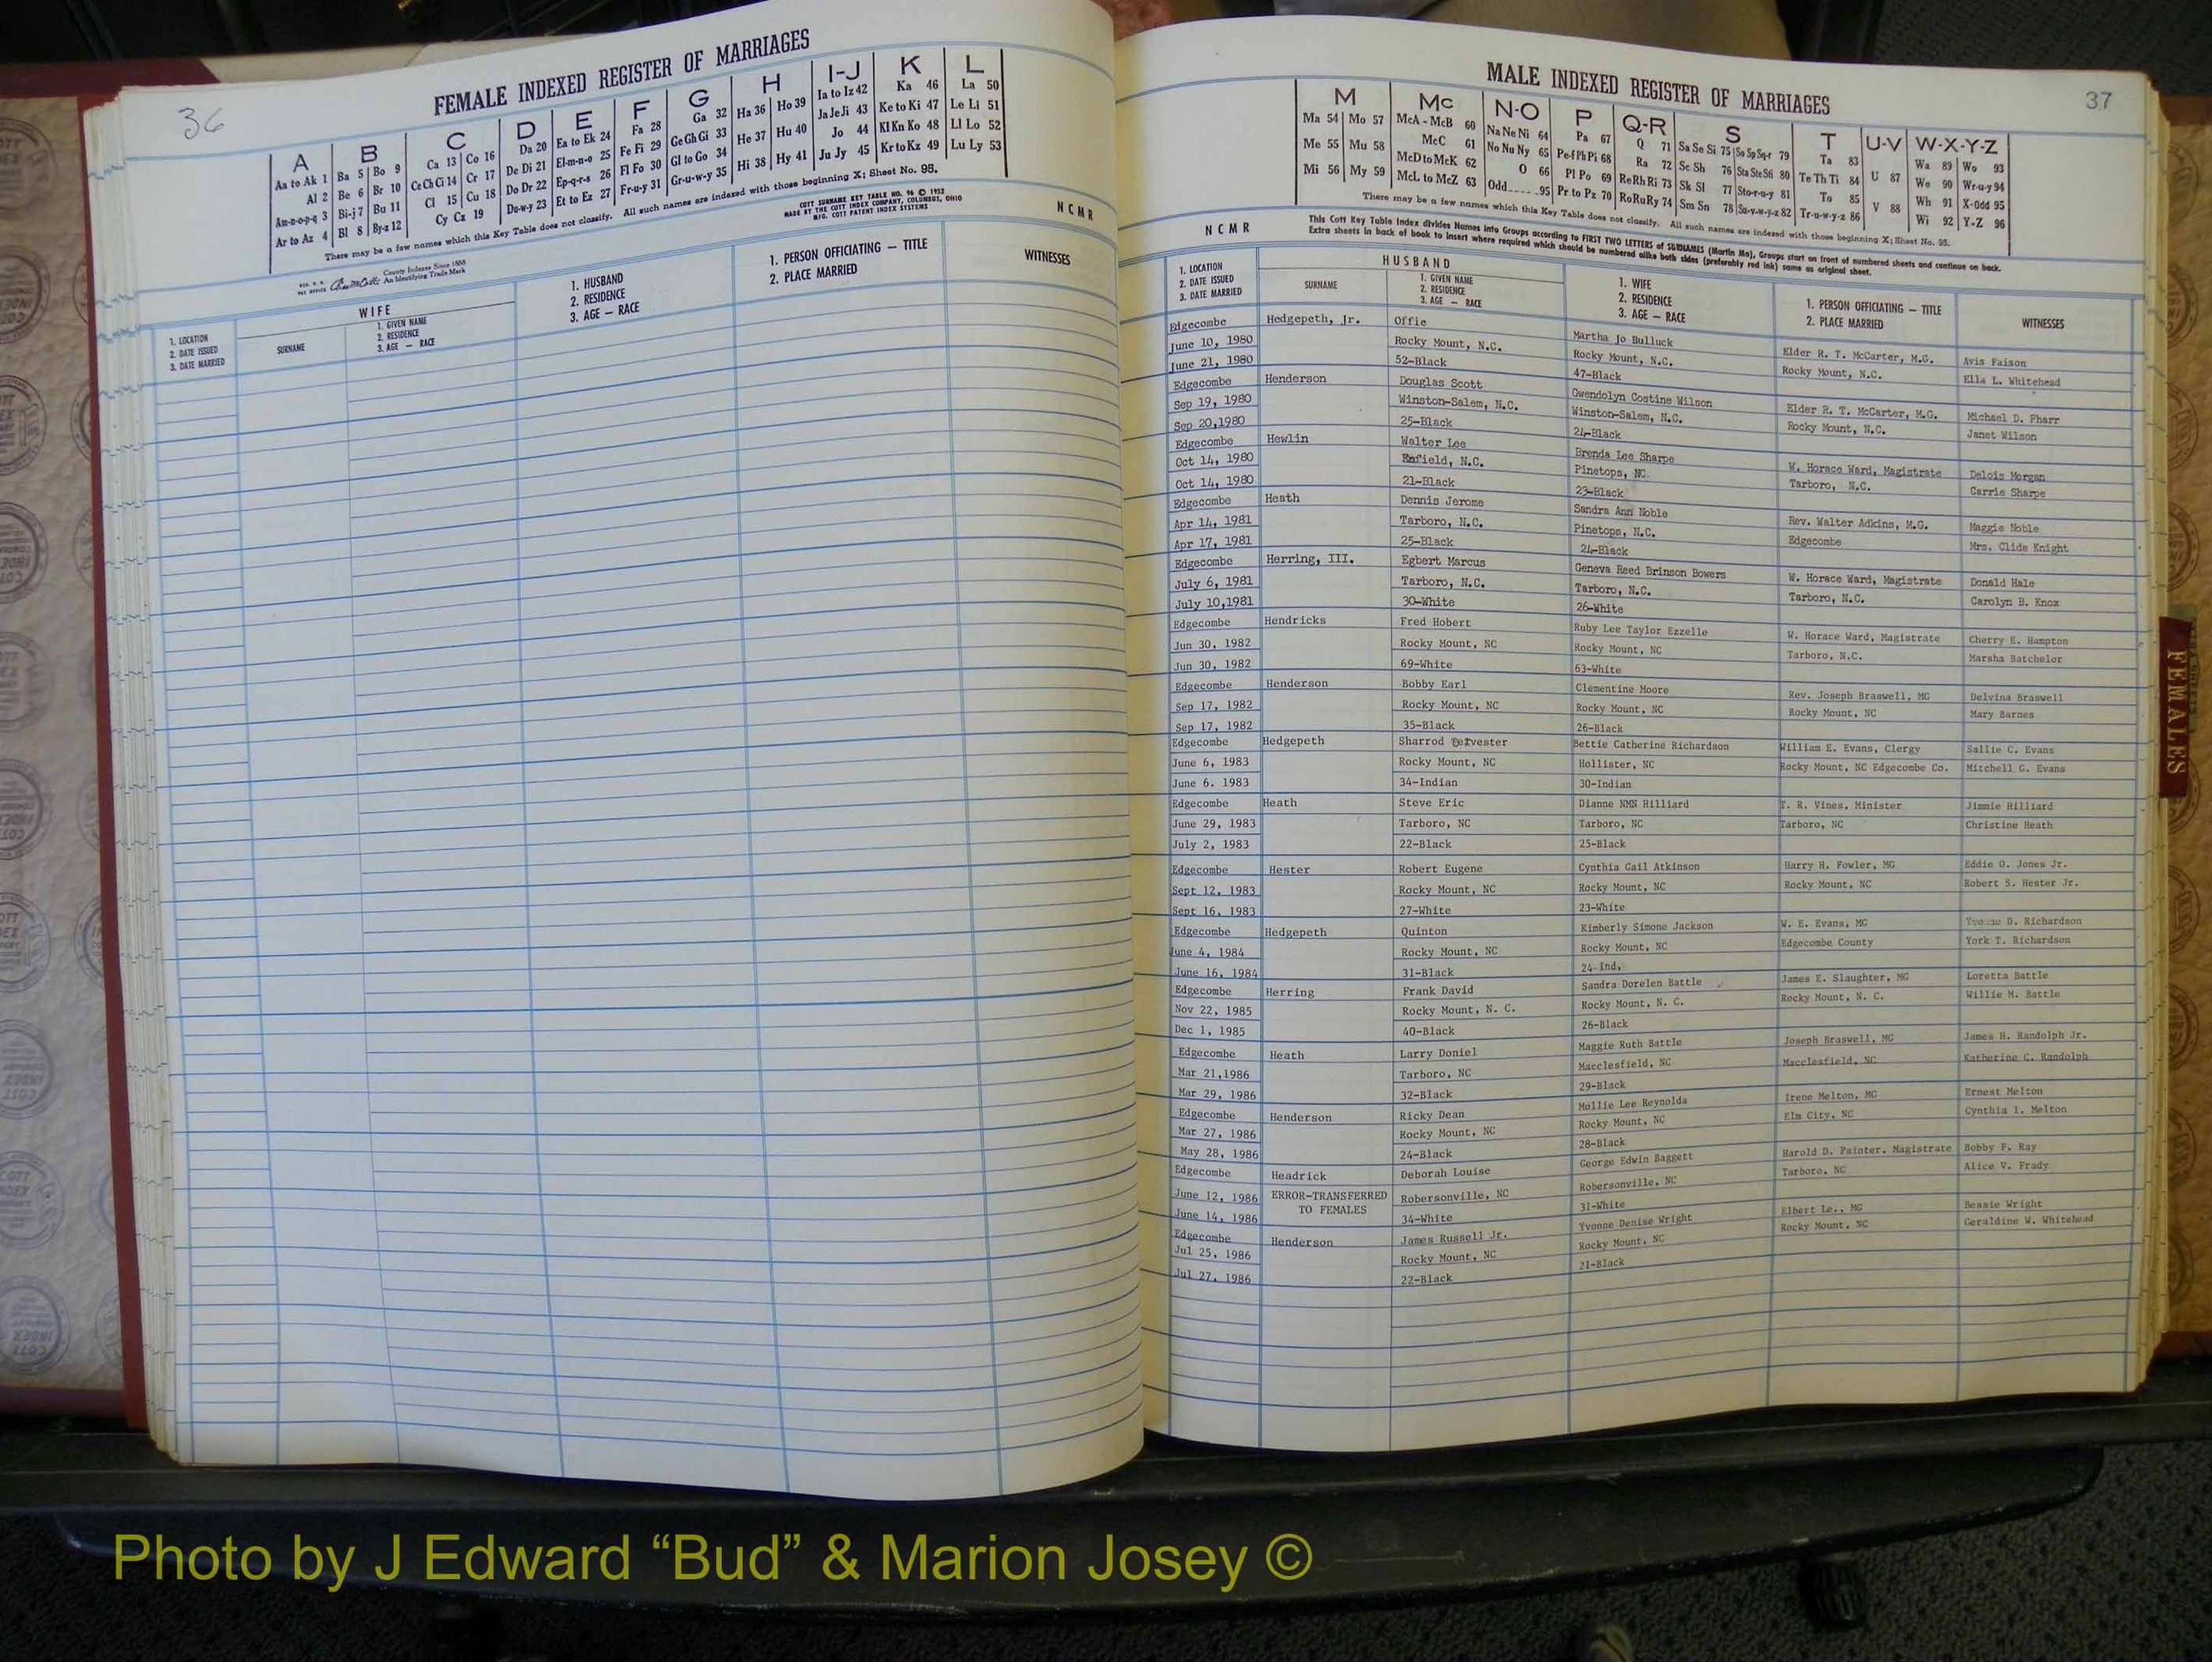 36
FEMALE INDEXED REGISTER OF MARRIAGES
A B C D E F G H I-J K L
Aa to Ak 1 Ba 5 Bo 9 Ca 13 Co 16 Da 20 Ea to Ek 24 Fa 28 Ga 32 Ha 36 Ho 39 Ia to Iz 42 Ka 46 La 50
Al 2 Be 6 Br 10 Ce Ch Ci 14 Cr 17 De Di 21 El-m-n-o 25 Fe Fi 29 Ge Gh Gi 33 He 37 Hu 40 Ja Je Ji 43 Ke to Ki 47 Le Li 51
Am-n-o-p-q 3 Bi-j 7 Bu 11 Cl 15 Cu 18 Do Dr 22 Ep-q-r-s 26 Fl Fo 30 Gl to Go 34 Hi 38 Hy 41 Jo 44 Kl Kn Ko 48 Ll Lo 52
Ar to Az 4 Bl 8 By-z 12 Cy Cz 19 Du-w-y 23 Et to Ez 27 Fr-u-y 31 Gr-u-w-y 35 Ju Jy 45 Kr to Kz 49 Lu Ly 53
There may be a few names which this Key Table does not classify. All such names are indexed with those beginning X; Sheet No. 95.
County Indexes Since 1888
An Identifying Trade Mark
COTT SURNAME KEY TABLE NO. 96 © 1952
MADE BY THE COTT INDEX COMPANY, COLUMBUS, OHIO
MFG. COTT PATENT INDEX SYSTEMS
N C M R
1. LOCATION
2. DATE ISSUED
3. DATE MARRIED
WIFE
SURNAME
1. GIVEN NAME
2. RESIDENCE
3. AGE — RACE
1. HUSBAND
2. RESIDENCE
3. AGE — RACE
1. PERSON OFFICIATING — TITLE
2. PLACE MARRIED
WITNESSES
MALE INDEXED REGISTER OF MARRIAGES
37
M Mc N-O P Q-R S T U-V W-X-Y-Z
Ma 54 Mo 57 McA - McB 60 Na Ne Ni 64 Pa 67 Q 71 Sa Se Si 75 So Sp Sq-r 79 Ta 83 U 87 Wa 89 Wo 93
Me 55 Mu 58 McC 61 No Nu Ny 65 Pe-f Ph Pi 68 Ra 72 Sc Sh 76 Sta Ste Sti 80 Te Th Ti 84 We 90 Wr-u-y 94
Mi 56 My 59 McD to McK 62 O 66 Pl Po 69 Re Rh Ri 73 Sk Sl 77 Sto-r-u-y 81 To 85 V 88 Wh 91 X-Odd 95
McL to McZ 63 Odd-----95 Pr to Pz 70 Ro Ru Ry 74 Sm Sn 78 Su-v-w-y-z 82 Tr-u-w-y-z 86 Wi 92 Y-Z 96
There may be a few names which this Key Table does not classify. All such names are indexed with those beginning X; Sheet No. 95.
N C M R
This Cott Key Table Index divides Names into Groups according to FIRST TWO LETTERS of SURNAMES (Martin Ma), Groups start on front of numbered sheets and continue on back.
Extra sheets in back of book to insert where required which should be numbered alike both sides (preferably red ink) same as original sheet.
1. LOCATION
2. DATE ISSUED
3. DATE MARRIED
HUSBAND
SURNAME
1. GIVEN NAME
2. RESIDENCE
3. AGE — RACE
1. WIFE
2. RESIDENCE
3. AGE — RACE
1. PERSON OFFICIATING — TITLE
2. PLACE MARRIED
WITNESSES
Edgecombe Hedgepeth, Jr. Offie Martha Jo Bulluck Elder R. T. McCarter, M.G. Avis Faison
June 10, 1980 Rocky Mount, N.C. Rocky Mount, N.C. Rocky Mount, N.C. Ella L. Whitehead
June 21, 1980 52-Black 47-Black
Edgecombe Henderson Douglas Scott Gwendolyn Costine Wilson Elder R. T. McCarter, M.G. Michael D. Pharr
Sep 19, 1980 Winston-Salem, N.C. Winston-Salem, N.C. Rocky Mount, N.C. Janet Wilson
Sep 20,1980 25-Black 24-Black
Edgecombe Hewlin Walter Lee Brenda Lee Sharpe W. Horace Ward, Magistrate Delois Morgan
Oct 14, 1980 Enfield, N.C. Pinetops, NC. Tarboro, N.C. Carrie Sharpe
Oct 14, 1980 21-Black 23-Black
Edgecombe Heath Dennis Jerome Sandra Ann Noble Rev. Walter Adkins, M.G. Maggie Noble
Apr 14, 1981 Tarboro, N.C. Pinetops, N.C. Edgecombe Mrs. Clide Knight
Apr 17, 1981 25-Black 24-Black
Edgecombe Herring, III. Egbert Marcus Geneva Reed Brinson Bowers W. Horace Ward, Magistrate Donald Hale
July 6, 1981 Tarboro, N.C. Tarboro, N.C. Tarboro, N.C. Carolyn B. Knox
July 10,1981 30-White 26-White
Edgecombe Hendricks Fred Hobert Ruby Lee Taylor Ezzelle W. Horace Ward, Magistrate Cherry E. Hampton
Jun 30, 1982 Rocky Mount, NC Rocky Mount, NC Tarboro, N.C. Marsha Batchelor
Jun 30, 1982 69-White 63-White
Edgecombe Henderson Bobby Earl Clementine Moore Rev. Joseph Braswell, MG Delvina Braswell
Sep 17, 1982 Rocky Mount, NC Rocky Mount, NC Rocky Mount, NC Mary Barnes
Sep 17, 1982 35-Black 26-Black
Edgecombe Hedgepeth Sharrod Bettie Catherine Richardson William E. Evans, Clergy Sallie C. Evans
June 6, 1983 Rocky Mount, NC Hollister, NC Rocky Mount, NC Edgecombe Co. Mitchell G. Evans
June 6. 1983 34-Indian 30-Indian
Edgecombe Heath Steve Eric Dianne NMN Hilliard T. R. Vines, Minister Jimmie Hilliard
June 29, 1983 Tarboro, NC Tarboro, NC Tarboro, NC Christine Heath
July 2, 1983 22-Black 25-Black
Edgecombe Hester Robert Eugene Cynthia Gail Atkinson Harry H. Fowler, MG Eddie O. Jones Jr.
Sept 12, 1983 Rocky Mount, NC Rocky Mount, NC Rocky Mount, NC Robert S. Hester Jr.
Sept 16, 1983 27-White 23-White
Edgecombe Hedgepeth Quinton Kimberly Simone Jackson W. E. Evans, MG D. Richardson
June 4, 1984 Rocky Mount, NC Rocky Mount, NC Edgecombe County York T. Richardson
June 16, 1984 31-Black 24-Ind.
Edgecombe Herring Frank David Sandra Dorelen Battle James E. Slaughter, MG Loretta Battle
Nov 22, 1985 Rocky Mount, N. C. Rocky Mount, N. C. Rocky Mount, N. C. Willie M. Battle
Dec 1, 1985 40-Black 26-Black
Edgecombe Heath Larry Doniel Maggie Ruth Battle Joseph Braswell, MG James H. Randolph Jr.
Mar 21,1986 Tarboro, NC Macclesfield, NC Macclesfield, NC Katherine C. Randolph
Mar 29, 1986 32-Black 29-Black
Edgecombe Henderson Ricky Dean Mollie Lee Reynolds Irene Melton, MG Ernest Melton
Mar 27, 1986 Rocky Mount, NC Rocky Mount, NC Elm City, NC Cynthia I. Melton
May 28, 1986 24-Black 28-Black
Edgecombe Headrick Deborah Louise George Edwin Baggett Harold D. Painter, Magistrate Bobby F. Ray
June 12, 1986 ERROR-TRANSFERRED Robersonville, NC Robersonville, NC Tarboro, NC Alice V. Frady
June 14, 1986 TO FEMALES 34-White 31-White
Edgecombe Henderson James Russell Jr. Yvonne Denise Wright Elbert Le., MG Bessie Wright
Jul 25, 1986 Rocky Mount, NC Rocky Mount, NC Rocky Mount, NC Geraldine W. Whitehead
Jul 27, 1986 22-Black 21-Black
FEMALES
Photo by J Edward “Bud” & Marion Josey ©